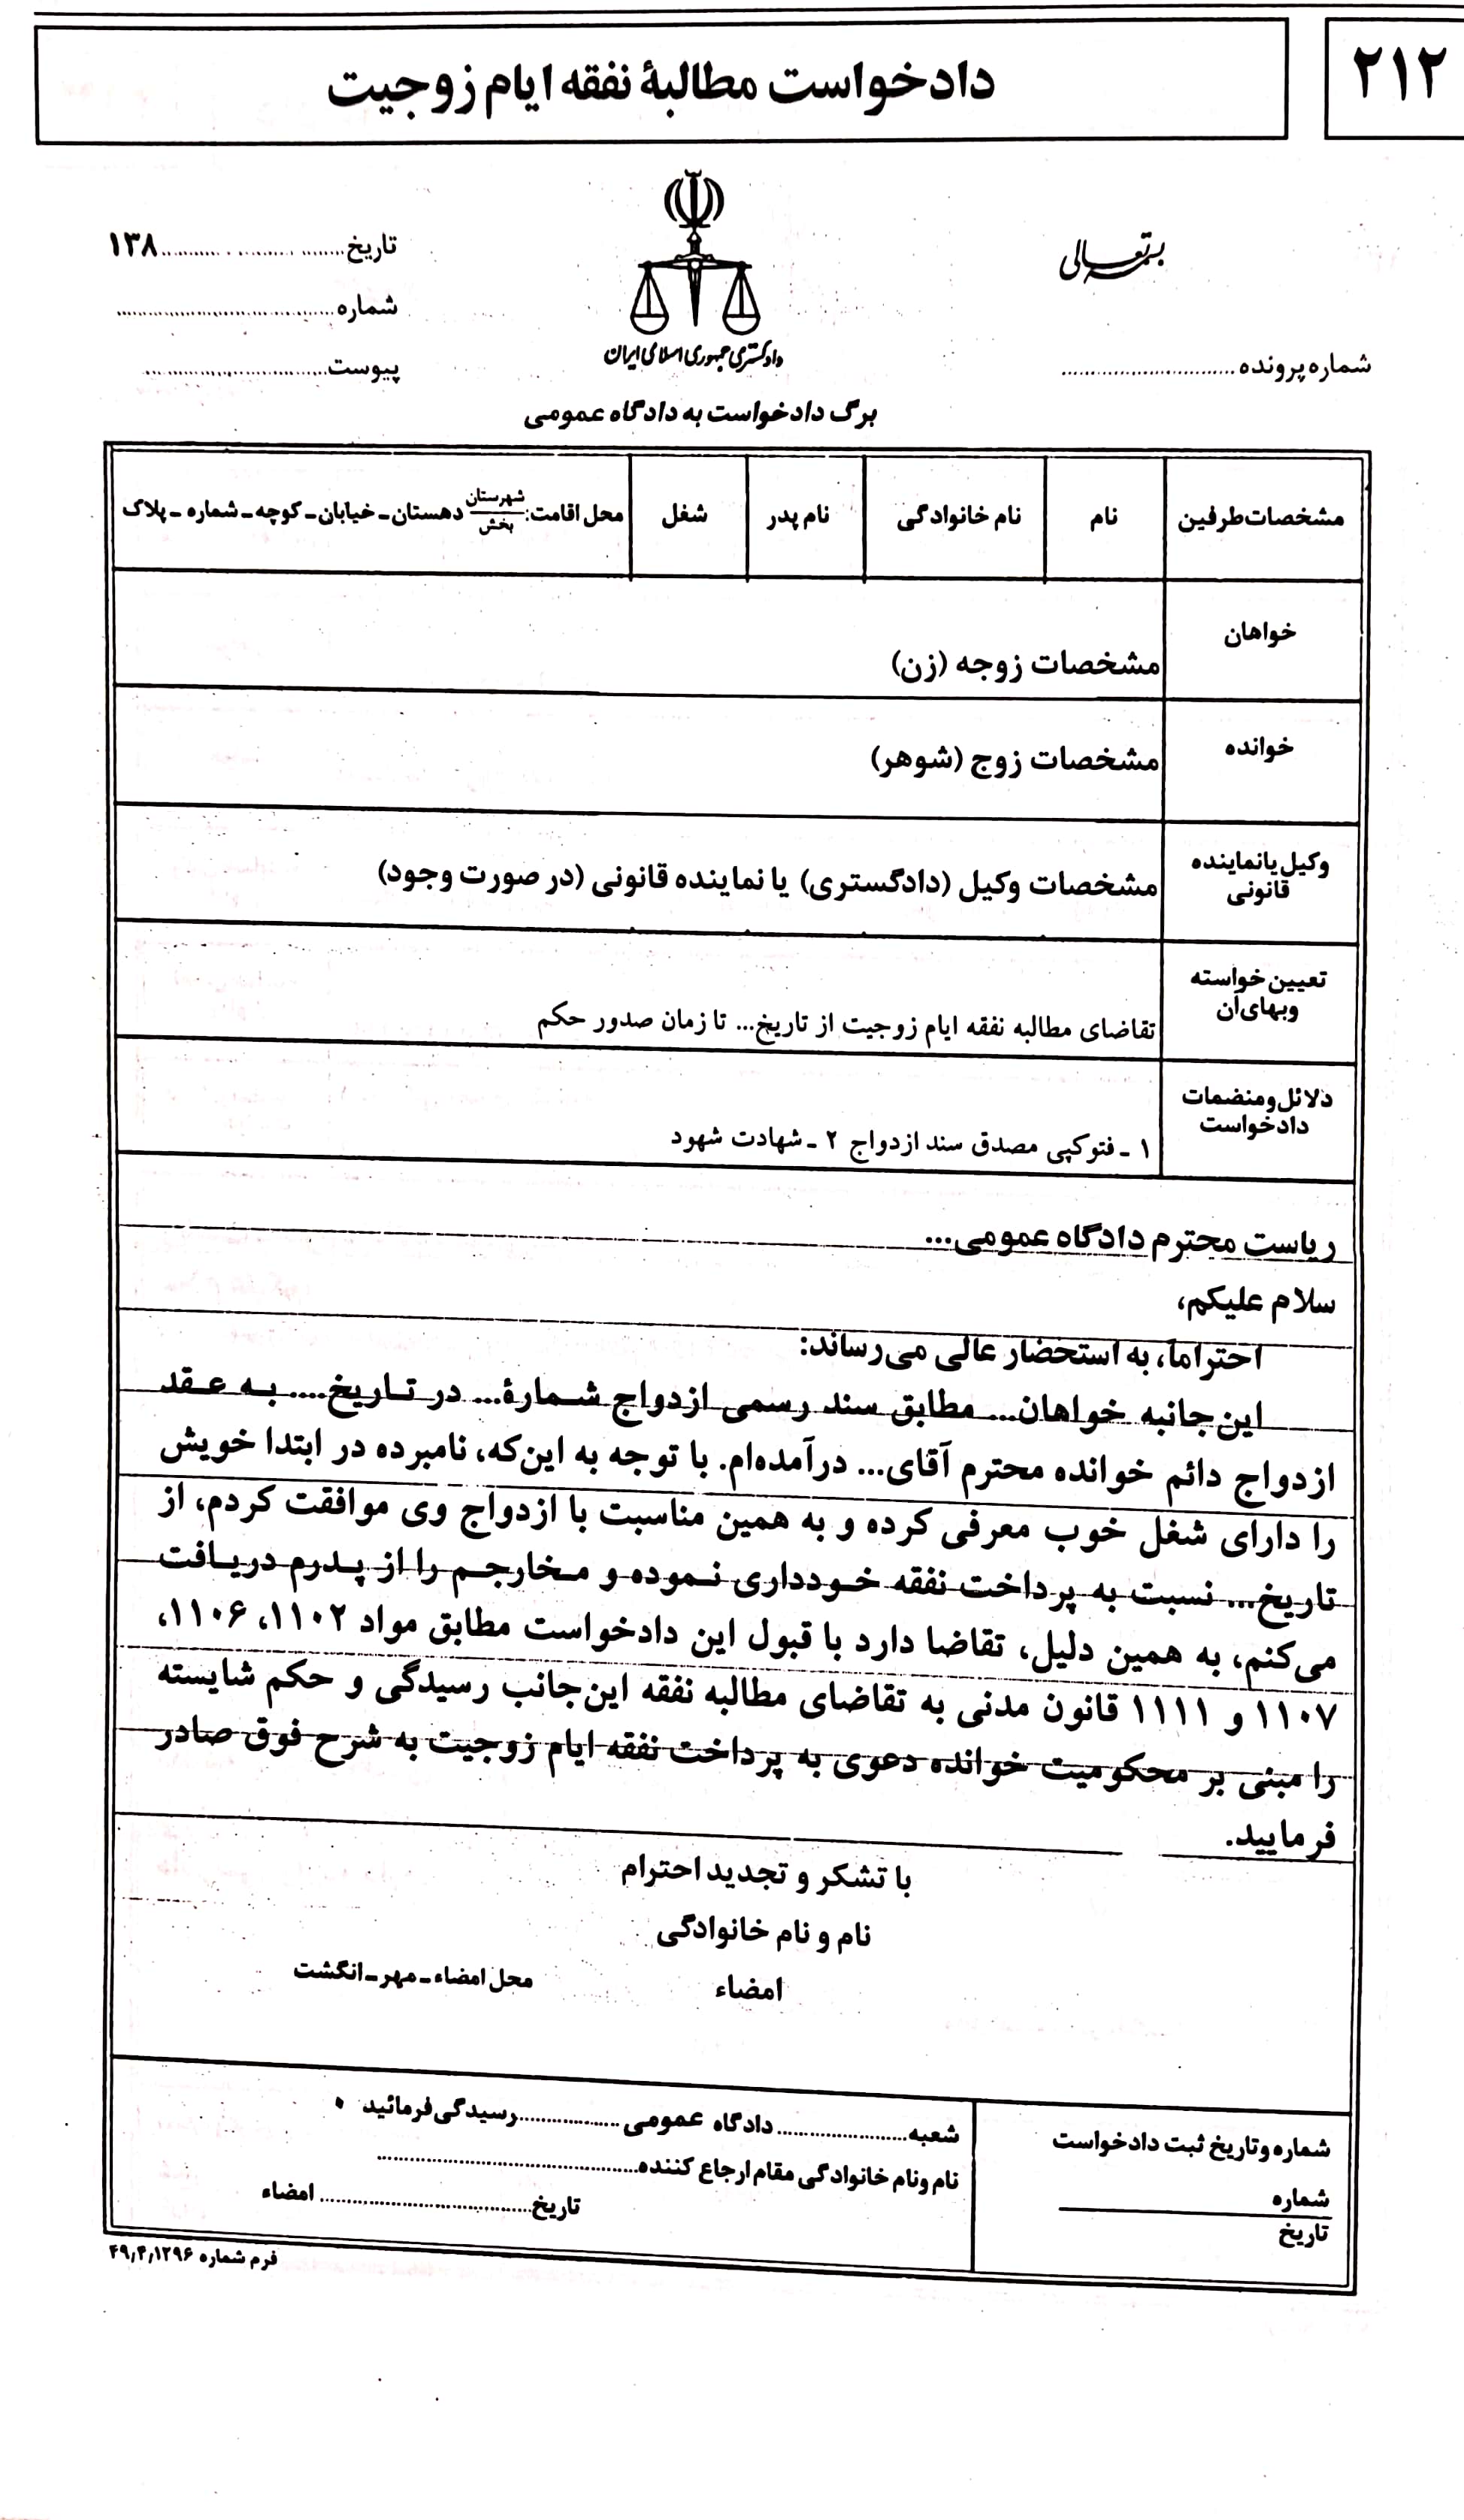 ۲۱۲
دادخواست مطالبهٔ نفقه ایام زوجیت
بسمه تعالی
تاریخ........................۱۳۸
شماره........................
پیوست........................
شماره پرونده........................
دادگستری جمهوری اسلامی ایران
برگ دادخواست به دادگاه عمومی
مشخصات طرفین
نام
نام خانوادگی
نام پدر
شغل
محل اقامت: شهرستان / بخش دهستان ـ خیابان ـ کوچه ـ شماره ـ پلاک
خواهان
مشخصات زوجه (زن)
خوانده
مشخصات زوج (شوهر)
وکیل یا نماینده
قانونی
مشخصات وکیل (دادگستری) یا نماینده قانونی (در صورت وجود)
تعیین خواسته
وبهای آن
تقاضای مطالبه نفقه ایام زوجیت از تاریخ... تا زمان صدور حکم
دلائل و منضمات
دادخواست
۱ ـ فتوکپی مصدق سند ازدواج ۲ ـ شهادت شهود
ریاست محترم دادگاه عمومی...
سلام علیکم،
احتراماً، به استحضار عالی می‌رساند:
این‌جانبه خواهان... مطابق سند رسمی ازدواج شمارهٔ... در تاریخ.... به عقد
ازدواج دائم خوانده محترم آقای... درآمده‌ام. با توجه به این‌که، نامبرده در ابتدا خویش
را دارای شغل خوب معرفی کرده و به همین مناسبت با ازدواج وی موافقت کردم، از
تاریخ... نسبت به پرداخت نفقه خودداری نموده و مخارجم را از پدرم دریافت
می‌کنم، به همین دلیل، تقاضا دارد با قبول این دادخواست مطابق مواد ۱۱۰۲، ۱۱۰۶،
۱۱۰۷ و ۱۱۱۱ قانون مدنی به تقاضای مطالبه نفقه این‌جانب رسیدگی و حکم شایسته
را مبنی بر محکومیت خوانده دعوی به پرداخت نفقه ایام زوجیت به شرح فوق صادر
فرمایید.
با تشکر و تجدید احترام
نام و نام خانوادگی
امضاء
محل امضاء ـ مهر ـ انگشت
شماره و تاریخ ثبت دادخواست
شماره
تاریخ
شعبه........................دادگاه عمومی ..................رسیدگی فرمائید .
نام ونام خانوادگی مقام ارجاع کننده........................
تاریخ........................ امضاء
فرم شماره ۴۹٫۴٫۱۲۹۶